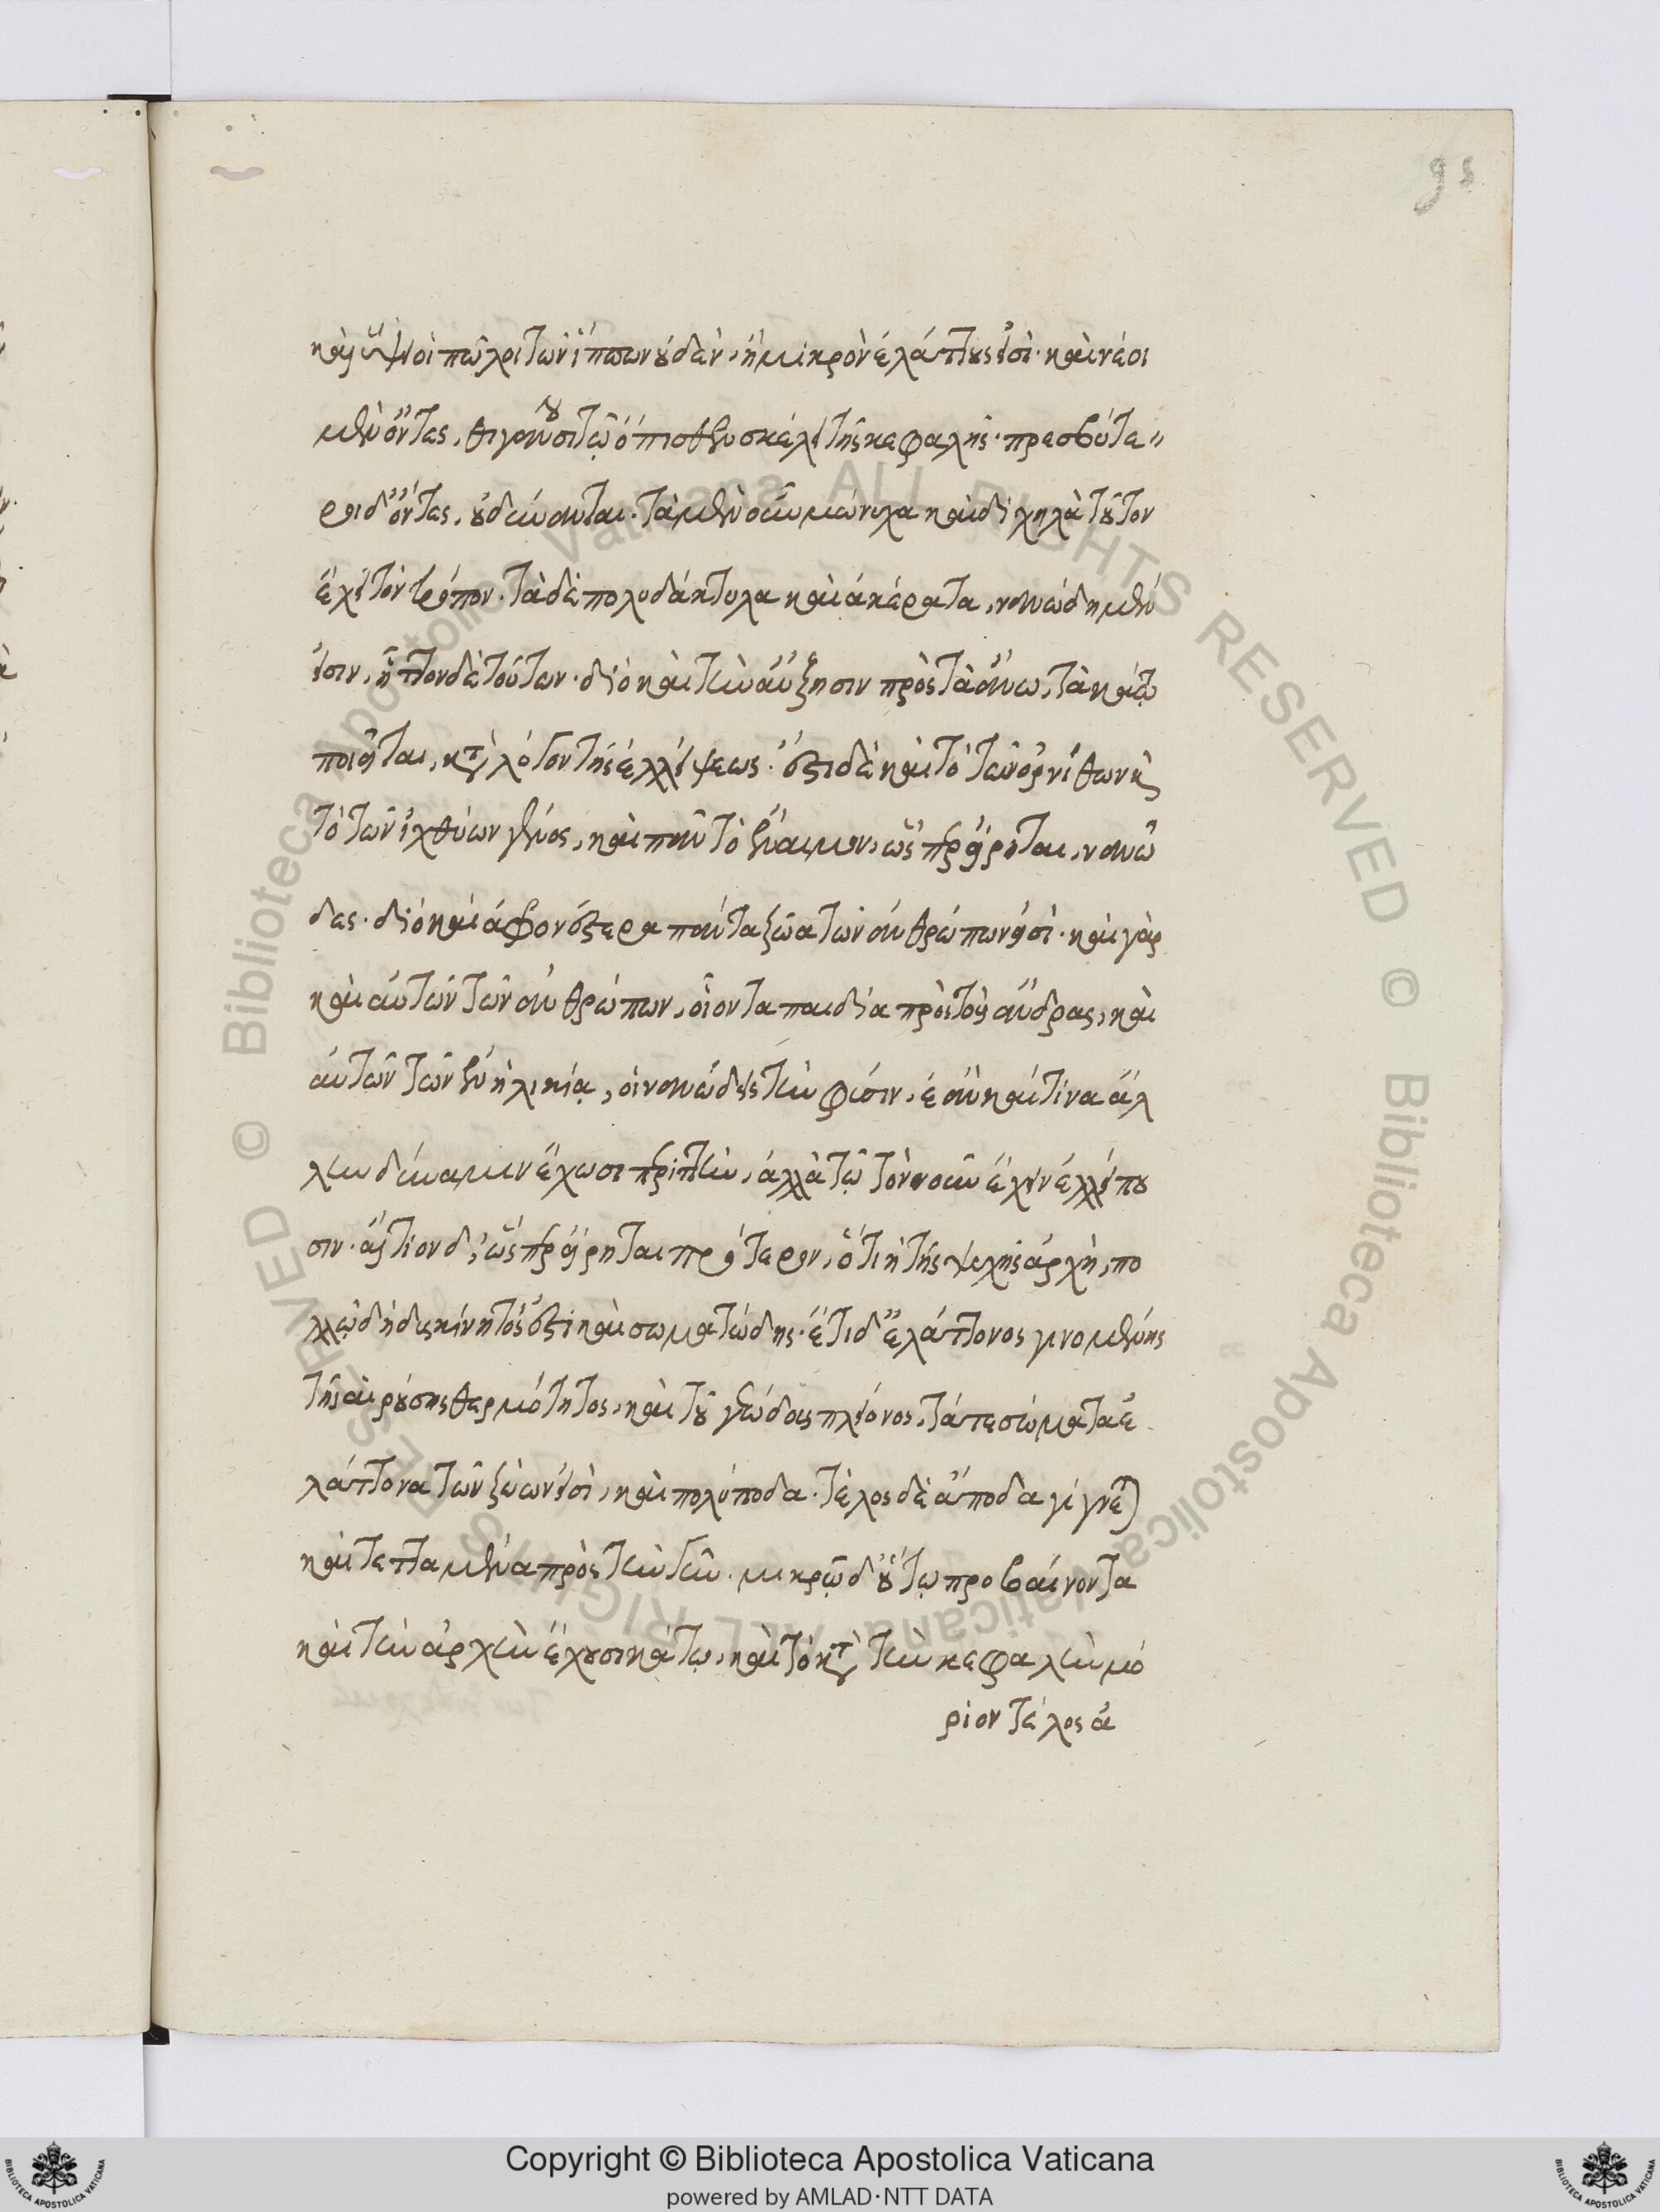 95
καὶ ὕψοι πῶλοι τῶν ἵππων οὐδὲν, ἢ μικρὸν ἐλάττους εἰσί· καὶ νέοι
μὲν ὄντες, θιγγάνουσι τῷ ὄπισθεν σκέλει τῆς κεφαλῆς· πρεσβύτε〃
ροι δ' ὄντες, οὐ δύνανται. τὰ μὲν οὖν μώνυχα καὶ διχηλὰ τοῦτον
ἔχει τὸν τρόπον. τὰ δὲ πολυδάκτυλα καὶ ἀκέρατα, νανώδη μέν
εἰσιν, ἧττον δὲ τούτων. διὸ καὶ τὴν αὔξησιν πρὸς τὰ ἄνω, τὰ κάτω
ποιεῖται, κατὰ λόγον τῆς ἐλλείψεως. ἔστι δὲ καὶ τὸ τῶν ὀρνίθων καὶ
τὸ τῶν ἰχθύων γένος, καὶ πᾶν τὸ ἔναιμον, ὥσπερ εἴρηται, νανῶ
δες. διὸ καὶ ἀφρονέστερα πάντα ζῶα τῶν ἀνθρώπων εἰσί· καὶ γὰρ
καὶ αὐτῶν τῶν ἀνθρώπων, οἷον τὰ παιδία πρὸς τοὺς ἄνδρας, καὶ
αὐτῶν τῶν ἐν ἡλικίᾳ, οἱ νανώδεις τὴν φύσιν, ἐὰν καί τινα ἄλ
λην δύναμιν ἔχωσι περιττὴν, ἀλλὰ τῷ τὸν νοῦν ἔχειν ἐλλείπου
σιν. αἴτιον δ', ὥσπερ εἴρηται πρότερον, ὅτι ἡ τῆς ψυχῆς ἀρχὴ, πο
λλῷ δὴ δυσκίνητός ἐστι καὶ σωματώδης. ἔτι δ' ἐλάττονος γινομένης
τῆς αἰρούσης θερμότητος, καὶ τοῦ γεώδους πλείονος, τά τε σώματα ἐ
λάττονα τῶν ζώων εἰσὶ, καὶ πολύποδα. τέλος δὲ ἄποδα γίγνεται
καὶ τεταμένα πρὸς τὴν γῆν. μικρῷ δ' οὕτω προβαίνοντα
καὶ τὴν ἀρχὴν ἔχουσι κάτω, καὶ τὸ κατὰ τὴν κεφαλὴν μό
ριον τέλος ἀ
Copyright © Biblioteca Apostolica Vaticana
powered by AMLAD·NTT DATA